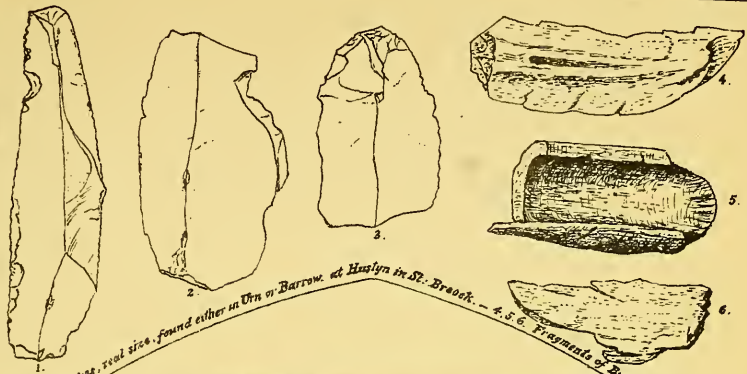 1.
2.
3.
4.
5.
6.
real size. found either in Urn or Barrow. at Hustyn in St. Breock. — 4.5.6. Fragments of